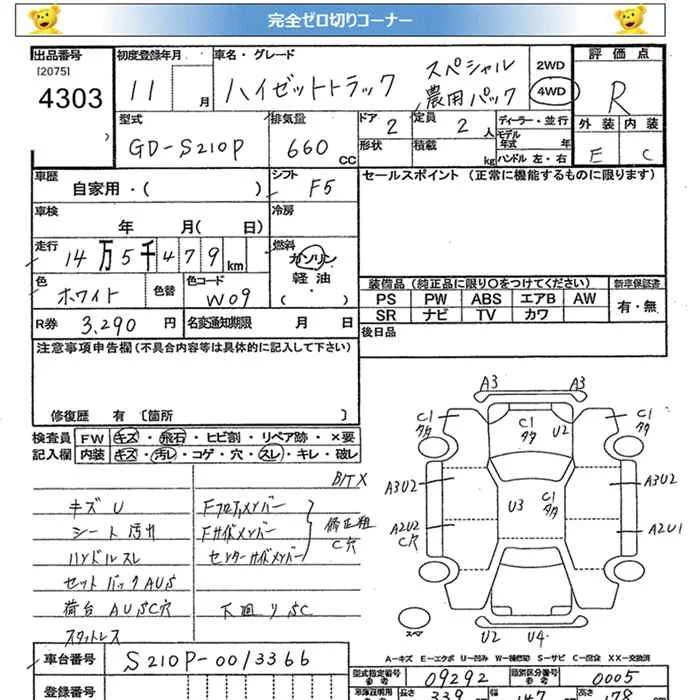 完全ゼロ切りコーナー
出品番号
[2075]
4303
初度登録年月
11 月
車名・グレード
ハイゼットトラック
スペシャル
農用パック
2WD
4WD
評価点
R
外装 内装
E C
型式
GD-S210P
排気量
660 CC
ドア 2
形状
定員 2 人
積載 kg
ディーラー・並行
モデル
年式 年
ハンドル 左・右
車歴
自家用・( )
シフト
F5
セールスポイント (正常に機能するものに限ります)
車検
年 月( 日)
冷房
走行
14万5千479km
燃料
ガソリン
軽油
( )
色
ホワイト
色替
色コード
W09
装備品 (純正品に限り〇をつけてください)
新車保証書
PS PW ABS エアB AW
有・無
SR ナビ TV カワ
R券 3,290 円
名変通知期限 月 日
後日品
注意事項申告欄 (不具合内容等は具体的に記入して下さい)
修復歴 有 [箇所 ]
検査員
記入欄
FW キズ・飛石・ヒビ割・リペア跡・×要
内装 キズ・汚レ・コゲ・穴・スレ・キレ・破レ
B/TX
キズ U
シート汚れ
ハンドルスレ
セットバックAUS
荷台 AUSC穴
スタットレス
Fフロアメンバー
Fサイドメンバー
センターサイドメンバー
修正粗
C穴
下廻りSC
A3 A3
C1
タケ
C1
タケ
U2
C1
タケ
A3U2
U3
C1
タケ
A3U2
A2U2
C穴
A2U1
スペア
U2 U4
A-キズ E-エクボ U-凹み W-補修跡 S-サビ C-腐食 XX-交換済
車台番号
S210P-0013366
型式指定番号
参考
09292
類別区分番号
参考
0005
登録番号
長さ 339
幅 147
高さ 178